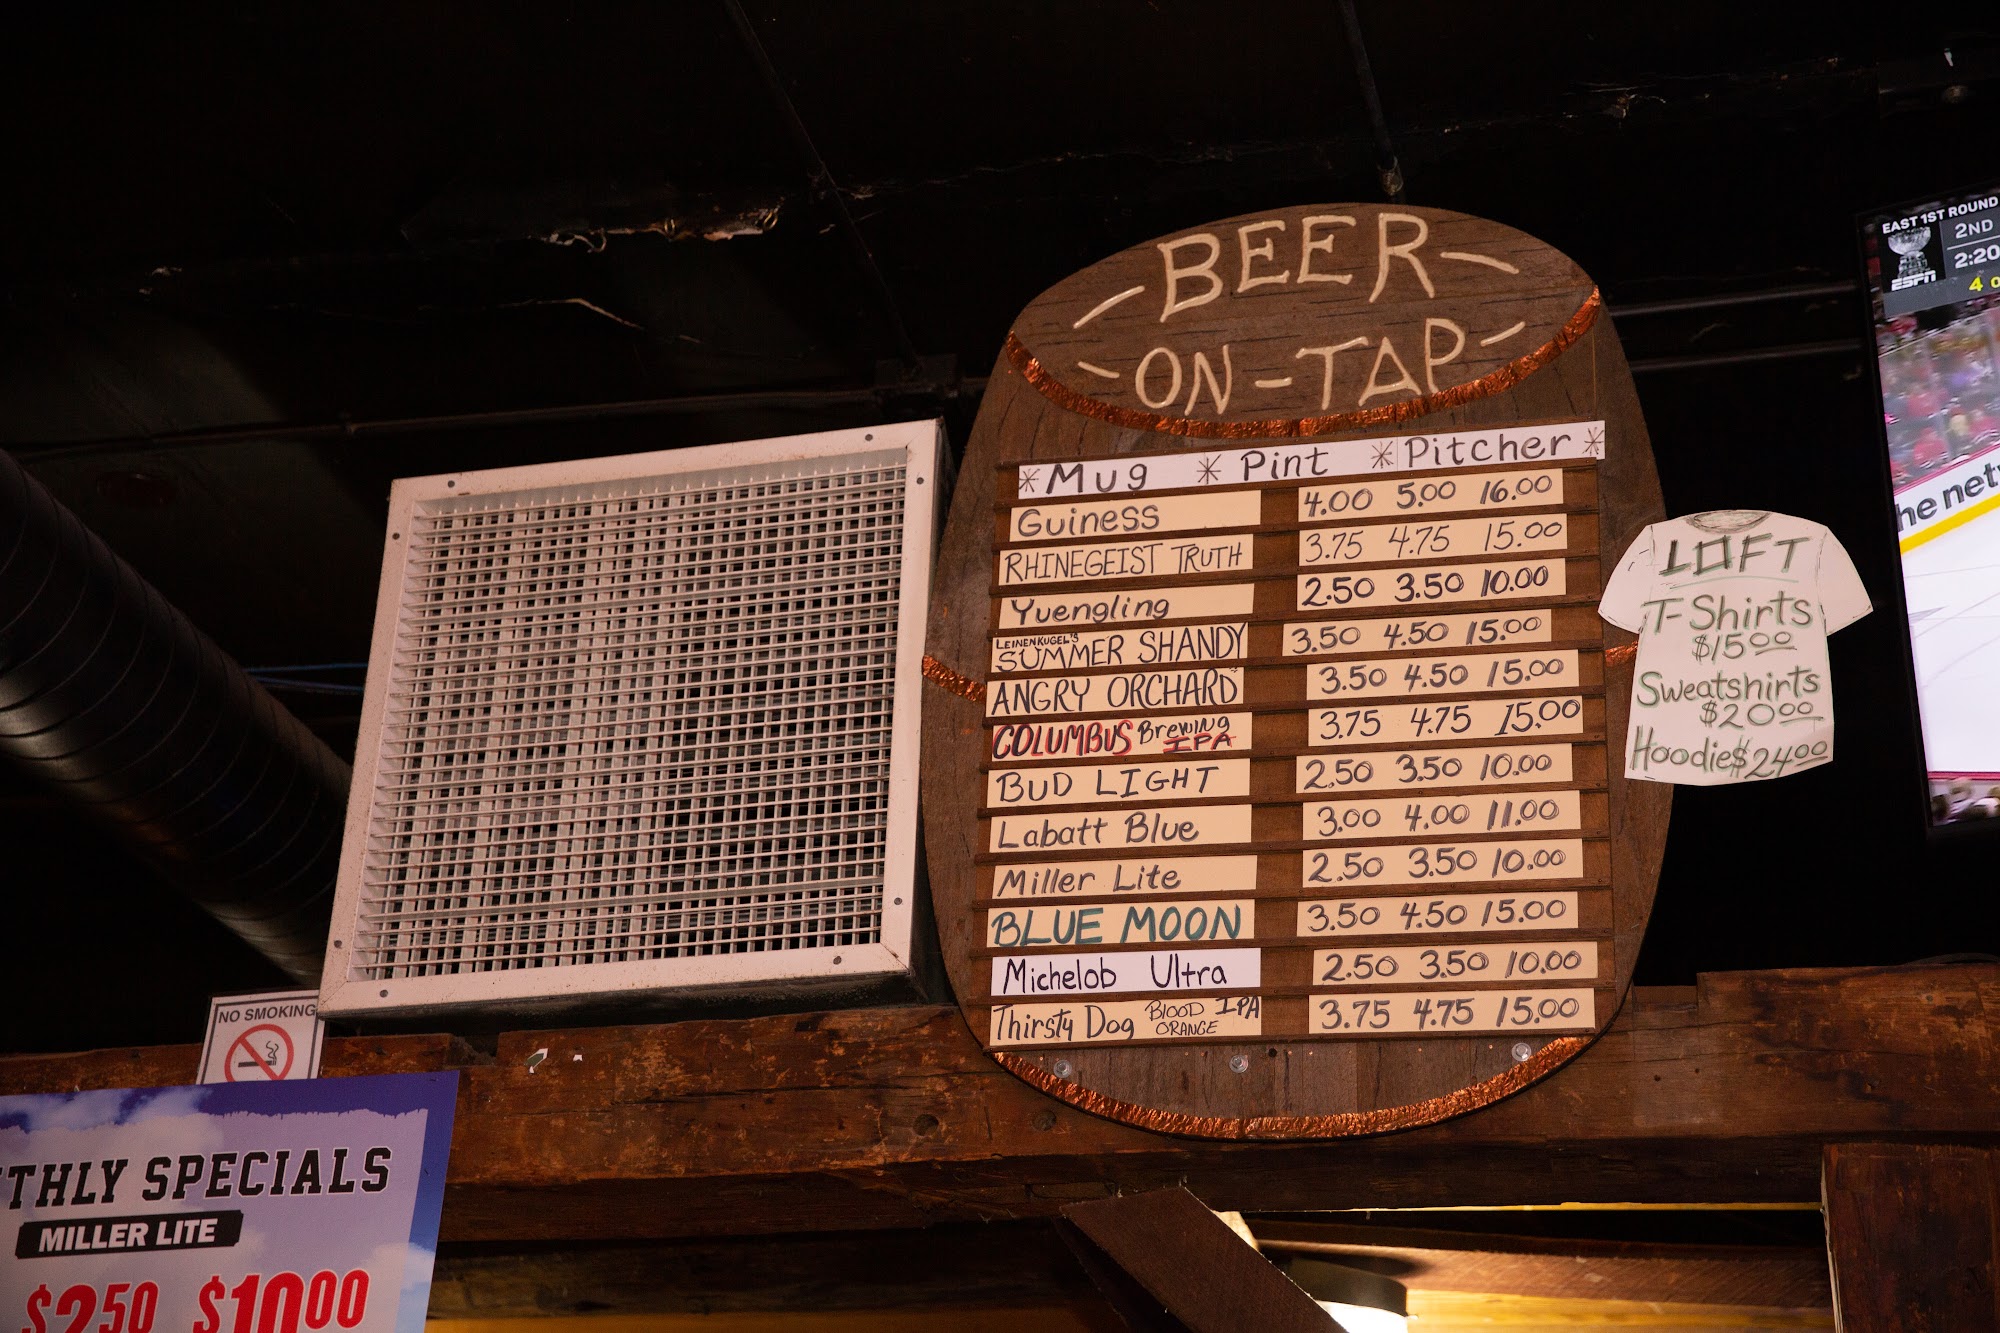 BEER
ON-TAP
* Mug * Pint * Pitcher *
Guiness 4.00 5.00 16.00
RHINEGEIST TRUTH 3.75 4.75 15.00
Yuengling 2.50 3.50 10.00
LEINENKUGEL'S
SUMMER SHANDY 3.50 4.50 15.00
ANGRY ORCHARD 3.50 4.50 15.00
COLUMBUS Brewing IPA 3.75 4.75 15.00
BUD LIGHT 2.50 3.50 10.00
Labatt Blue 3.00 4.00 11.00
Miller Lite 2.50 3.50 10.00
BLUE MOON 3.50 4.50 15.00
Michelob Ultra 2.50 3.50 10.00
Thirsty Dog BLOOD ORANGE IPA 3.75 4.75 15.00
LOFT
T-Shirts
$15.00
Sweatshirts
$20.00
Hoodies $24.00
EAST 1ST ROUND
2ND
2:20
ESPN
4
he net
NO SMOKING
THLY SPECIALS
MILLER LITE
$2.50 $10.00